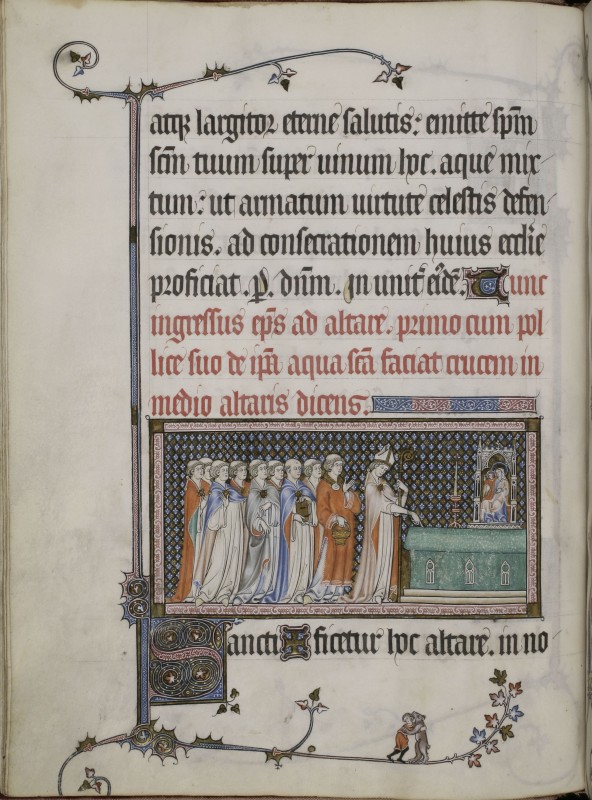 atq; largitor eterne salutis: emitte spm
scm tuum super uinum hoc. aque mix
tum: ut armatum uirtute celestis defen
sionis. ad consecrationem huius ecclie
proficiat. P. dnm. in unit eide. Tunc
ingressus eps ad altare. primo cum pol
lice suo de ipa aqua sca faciat crucem in
medio altaris dicens.
Sancti ✠ ficetur hoc altare. in no